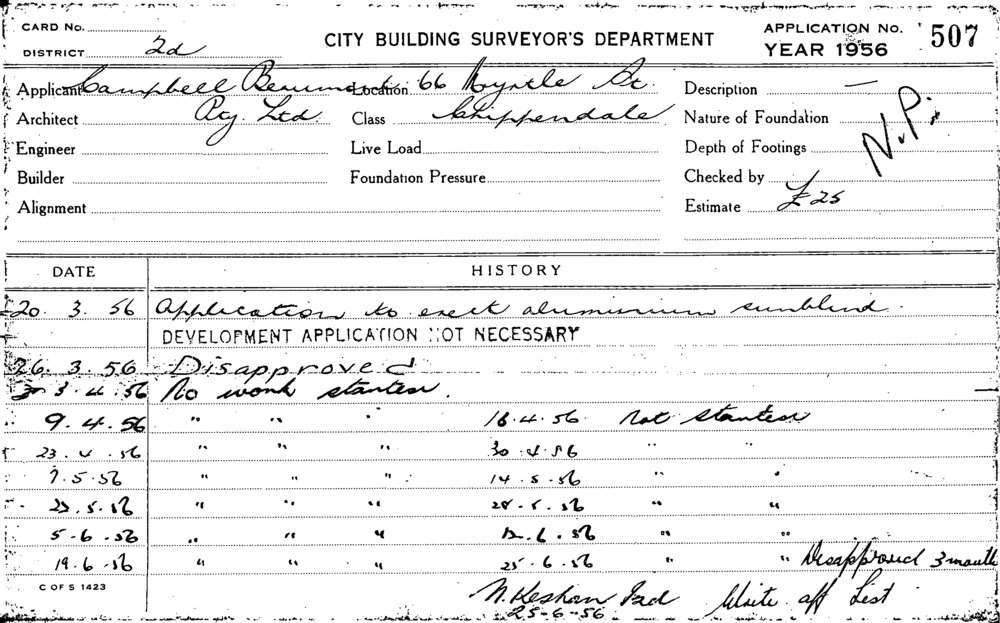 CARD No.
DISTRICT 2d
CITY BUILDING SURVEYOR'S DEPARTMENT
APPLICATION No. 507
YEAR 1956
Applicant Campbell Location 66 Myrtle St. Description —
Architect Pty. Ltd. Class Chippendale Nature of Foundation N.P.
Engineer Live Load Depth of Footings
Builder Foundation Pressure Checked by
Alignment Estimate £25
DATE HISTORY
20. 3. 56 Application to erect aluminium sunblind.
DEVELOPMENT APPLICATION NOT NECESSARY
26. 3. 56 Disapproved
3. 4. 56 No work started.
9. 4. 56 " " " 16.4.56. Not started
23. 4. 56 " " " 30.4.56 " "
7. 5. 56 " " " 14.5.56 " "
22. 5. 56 " " " 28.5.56 " "
5. 6. 56 " " " 12.6.56 " "
19. 6. 56 " " " 25.6.56 " " Disapproved 3 months
C OF S 1423
Write off List
25-6-56